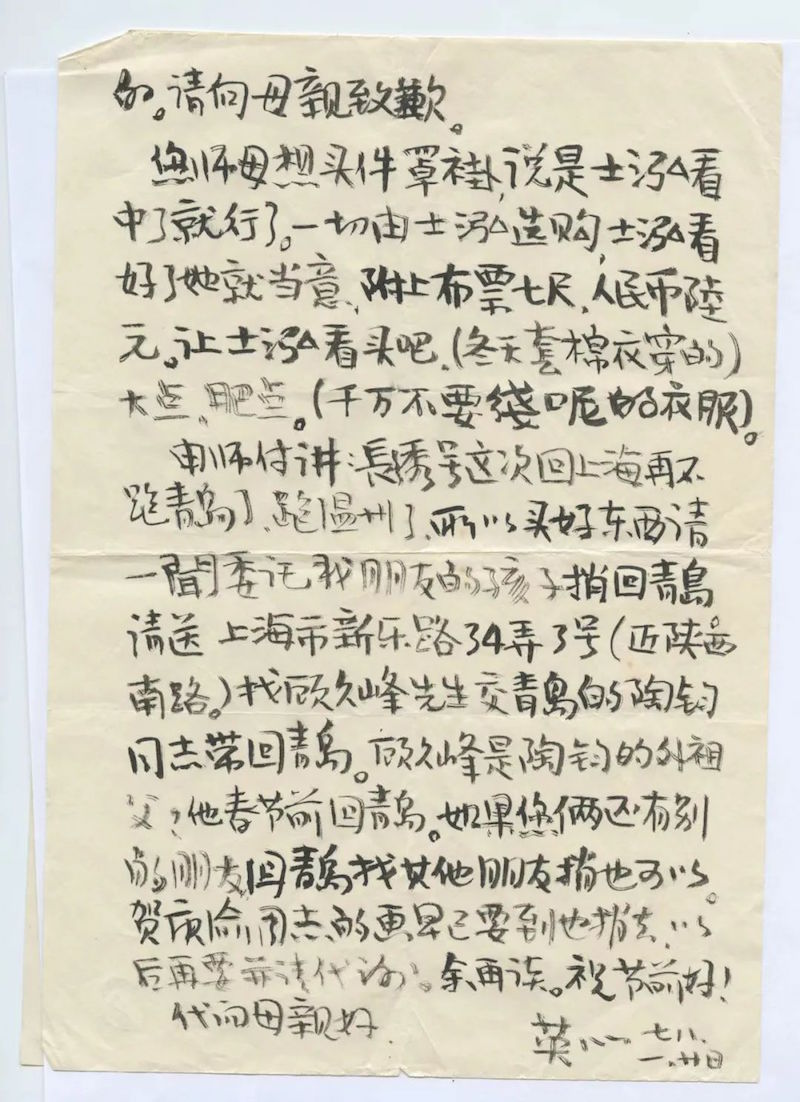 的。请向母亲致歉。
您师母想买件罩褂，说是士泓看
中了就行了。一切由士泓选购，士泓看
好了她就当意，附上布票七尺，人民币陸
元。让士泓看买吧，(冬天套棉衣穿的)
大点、肥点。(千万不要线呢的衣服)。
师付讲：長秀号这次回上海再不
跑青岛了，跑温州了，所以买好东西请
一闻委托我朋友的孩子捎回青島
请送上海市新乐路34弄3号(近陕西
南路。)找顾久峰先生交青島的陶钧
同志带回青島。顾久峰是陶钧的外祖
父，他春节前回青岛。如果您俩还有别
的朋友回青島找其他朋友捎也可以。
贺庆同志的画早已要到也捎去，以
后再要亦请代谢。余再谈。祝节前好！
代向母亲好。
英 七八.
一.廿日